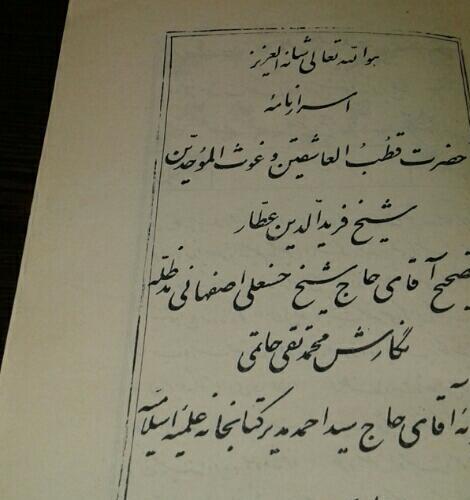 هو الله تعالی شانه العزیز
اسرارنامه
حضرت قطب العاشقین و غوث الموحدین
شیخ فریدالدین عطار
تصحیح آقای حاج شیخ حسنعلی اصفهانی مدظله
نگارش محمدتقی حاتمی
آقای حاج سید احمد مدیر کتابخانه علمیه اسلامیه